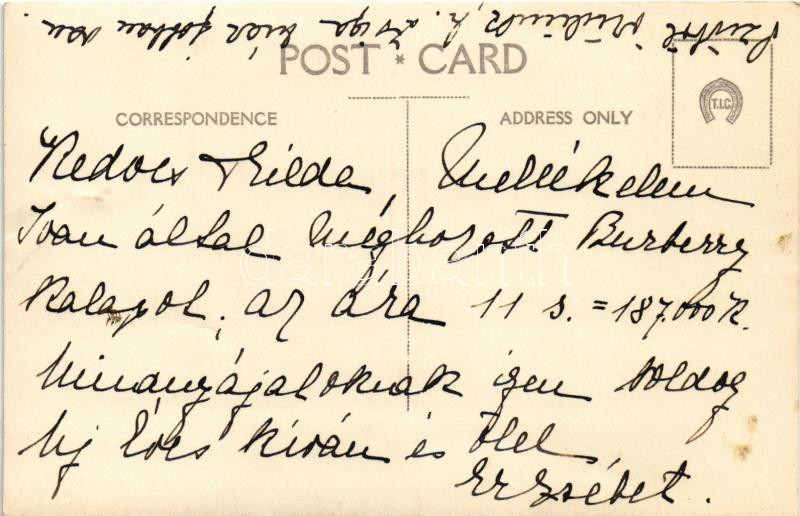 POST * CARD
CORRESPONDENCE
ADDRESS ONLY
T.I.C.
Kedves Hilda, Mellékelem
Ivan által meghozott Burberry
kalapot, az ára 11 s. = 187.000 K.
Mindnyájatoknak igen boldog
új Évet kíván és ölel
Erzsébet.
darabanth